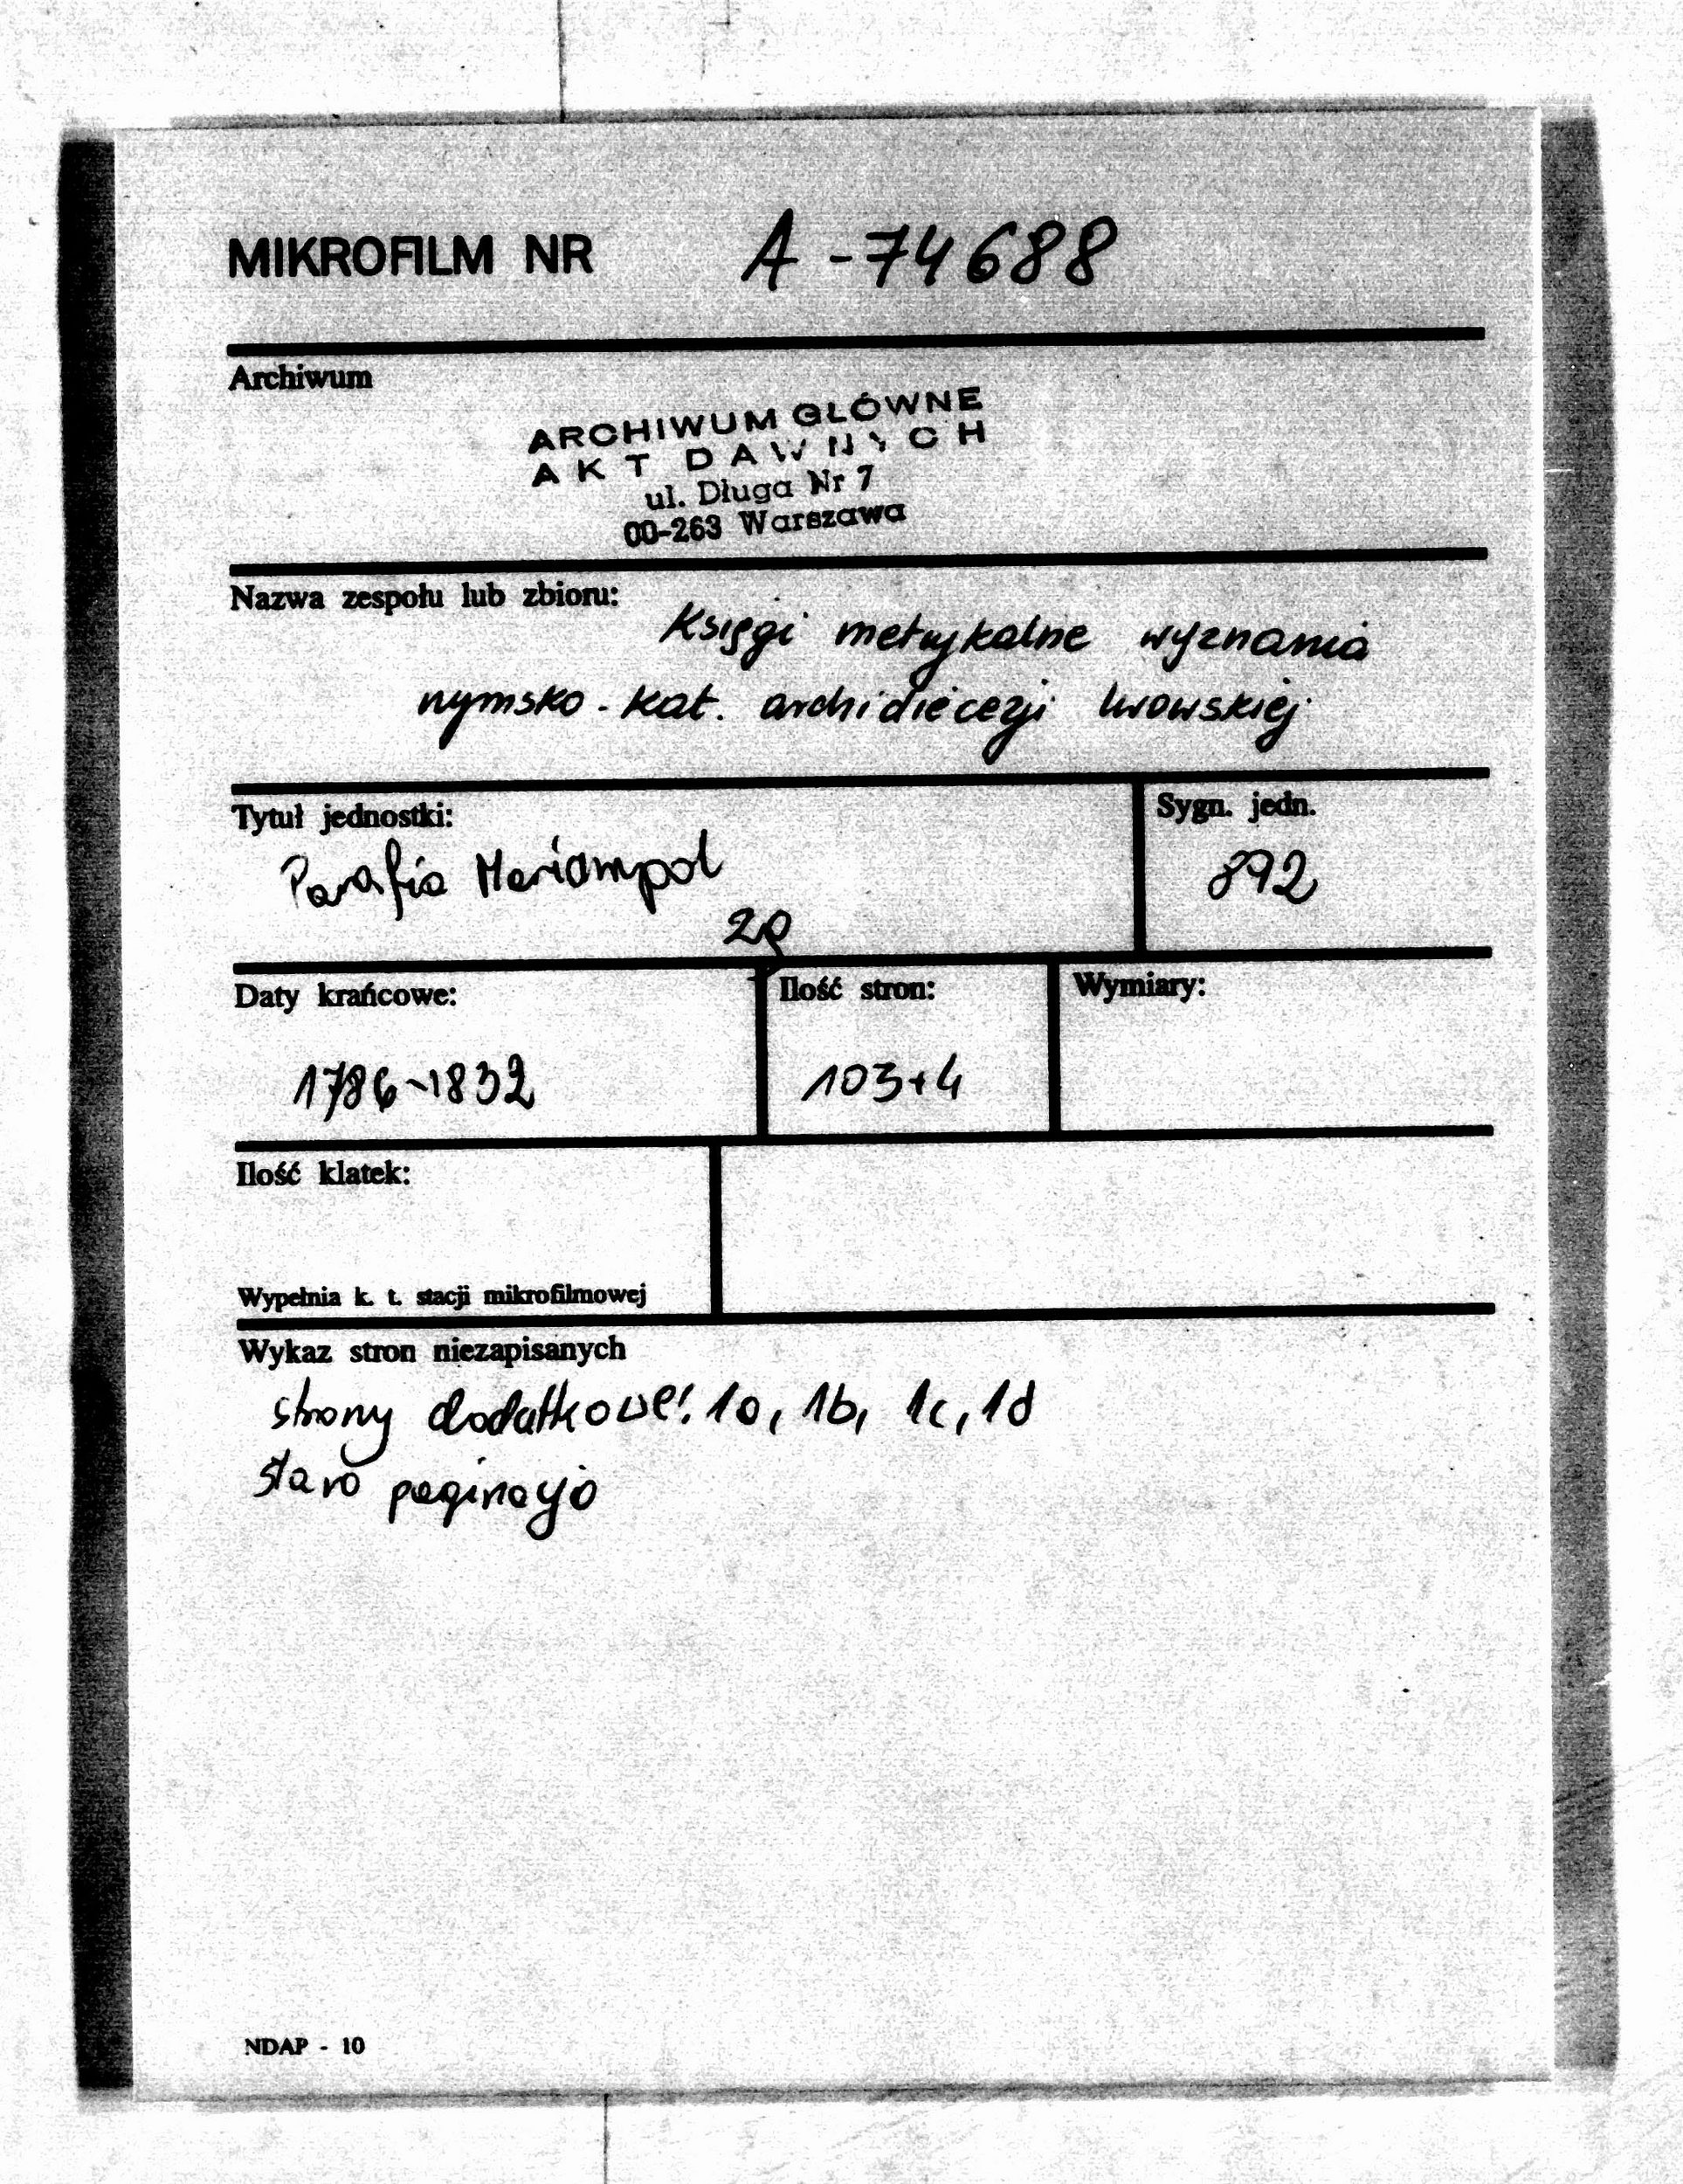 MIKROFILM NR A-74688
Archiwum
ARCHIWUM GŁÓWNE
AKT DAWNYCH
ul. Długa Nr 7
00-263 Warszawa
Nazwa zespołu lub zbioru:
Księgi metrykalne wyznania
rzymsko-kat. archidiecezji lwowskiej
Tytuł jednostki:
Sygn. jedn.
Parafia Mariampol
892
Daty krańcowe:
Ilość stron:
Wymiary:
1786-1832
103+4
Ilość klatek:
Wypełnia k. t. stacji mikrofilmowej
Wykaz stron niezapisanych
strony dodatkowe: 1a, 1b, 1c, 1d
stara paginacja
NDAP - 10